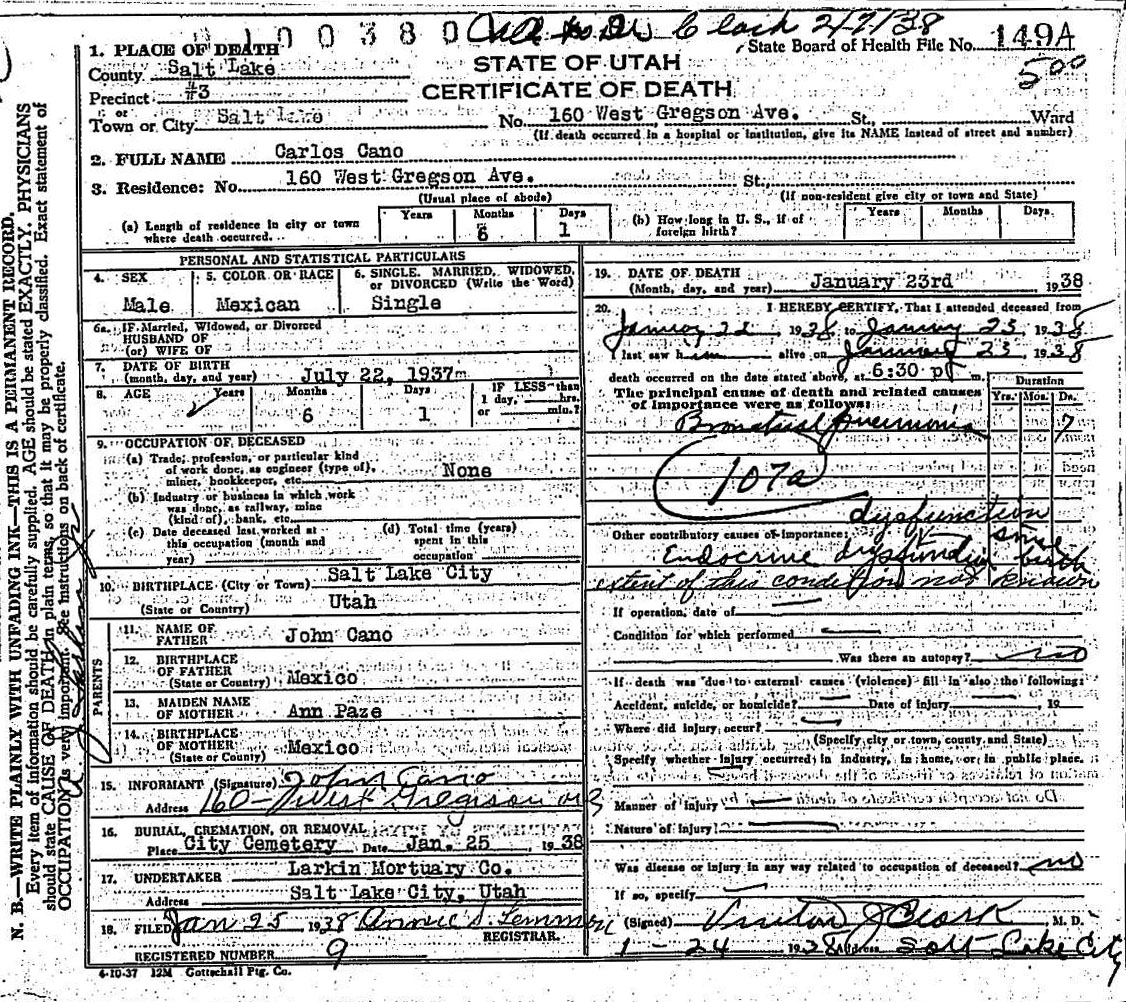 100380 Call to Dr Clark 2/7/38
State Board of Health File No. 149A
500
STATE OF UTAH
CERTIFICATE OF DEATH
1. PLACE OF DEATH
County Salt Lake
Precinct #3
or
Town or City Salt Lake No. 160 West Gregson Ave. St., Ward
(If death occurred in a hospital or institution, give its NAME instead of street and number)
2. FULL NAME Carlos Cano
3. Residence: No. 160 West Gregson Ave. St.,
(Usual place of abode) (If non-resident give city or town and State)
(a) Length of residence in city or town where death occurred. Years Months 6 Days 1
(b) How long in U. S., if of foreign birth? Years Months Days
PERSONAL AND STATISTICAL PARTICULARS
4. SEX Male
5. COLOR OR RACE Mexican
6. SINGLE, MARRIED, WIDOWED, or DIVORCED (Write the Word) Single
6a. IF Married, Widowed, or Divorced
HUSBAND OF
(or) WIFE OF
7. DATE OF BIRTH
(month, day, and year) July 22, 1937m
8. AGE Years Months 6 Days 1 IF LESS than 1 day, hrs. or min.?
9. OCCUPATION OF DECEASED
(a) Trade, profession, or particular kind
of work done, as engineer (type of),
miner, bookkeeper, etc. None
(b) Industry or business in which work
was done, as railway, mine
(kind of), bank, etc.
(c) Date deceased last worked at
this occupation (month and
year)
(d) Total time (years)
spent in this
occupation
10. BIRTHPLACE (City or Town) Salt Lake City
(State or Country) Utah
PARENTS
11. NAME OF FATHER John Cano
12. BIRTHPLACE OF FATHER
(State or Country) Mexico
13. MAIDEN NAME OF MOTHER Ann Paze
14. BIRTHPLACE OF MOTHER
(State or Country) Mexico
15. INFORMANT (Signature) John Cano
Address 160 - West Gregison ave
16. BURIAL, CREMATION, OR REMOVAL
Place City Cemetery Date Jan. 25 1938
17. UNDERTAKER Larkin Mortuary Co.
Address Salt Lake City, Utah
18. FILED Jan 25 1938 Annie S. Lemmon
REGISTRAR.
REGISTERED NUMBER 9
4-10-37 12M Gottschall Ptg. Co.
19. DATE OF DEATH
(Month, day, and year) January 23rd 1938
20. I HEREBY CERTIFY, That I attended deceased from
January 22 1938 to January 23 1938
I last saw him alive on January 23 1938
death occurred on the date stated above, at 6:30 p m.
The principal cause of death and related causes
of importance were as follows:
Duration
Yrs. Mos. Ds.
Bronchial pneumonia 7
107a
dysfunction
Other contributory causes of importance: since
Endocrine dysfunction birth
extent of this condition not known
If operation, date of
Condition for which performed
Was there an autopsy? no
If death was due to external causes (violence) fill in also the following:
Accident, suicide, or homicide? Date of injury 19
Where did injury occur?
(Specify city or town, county and State)
Specify whether injury occurred in industry, in home, or in public place.
Manner of Injury
Nature of Injury
Was disease or injury in any way related to occupation of deceased? no
If so, specify
(Signed) J Clark M. D.
1 - 24 1938 Address Salt Lake City
N. B.—WRITE PLAINLY WITH UNFADING INK—THIS IS A PERMANENT RECORD.
Every item of information should be carefully supplied. AGE should be stated EXACTLY. PHYSICIANS
should state CAUSE OF DEATH in plain terms, so that it may be properly classified. Exact statement of
OCCUPATION is very important. See instructions on back of certificate.